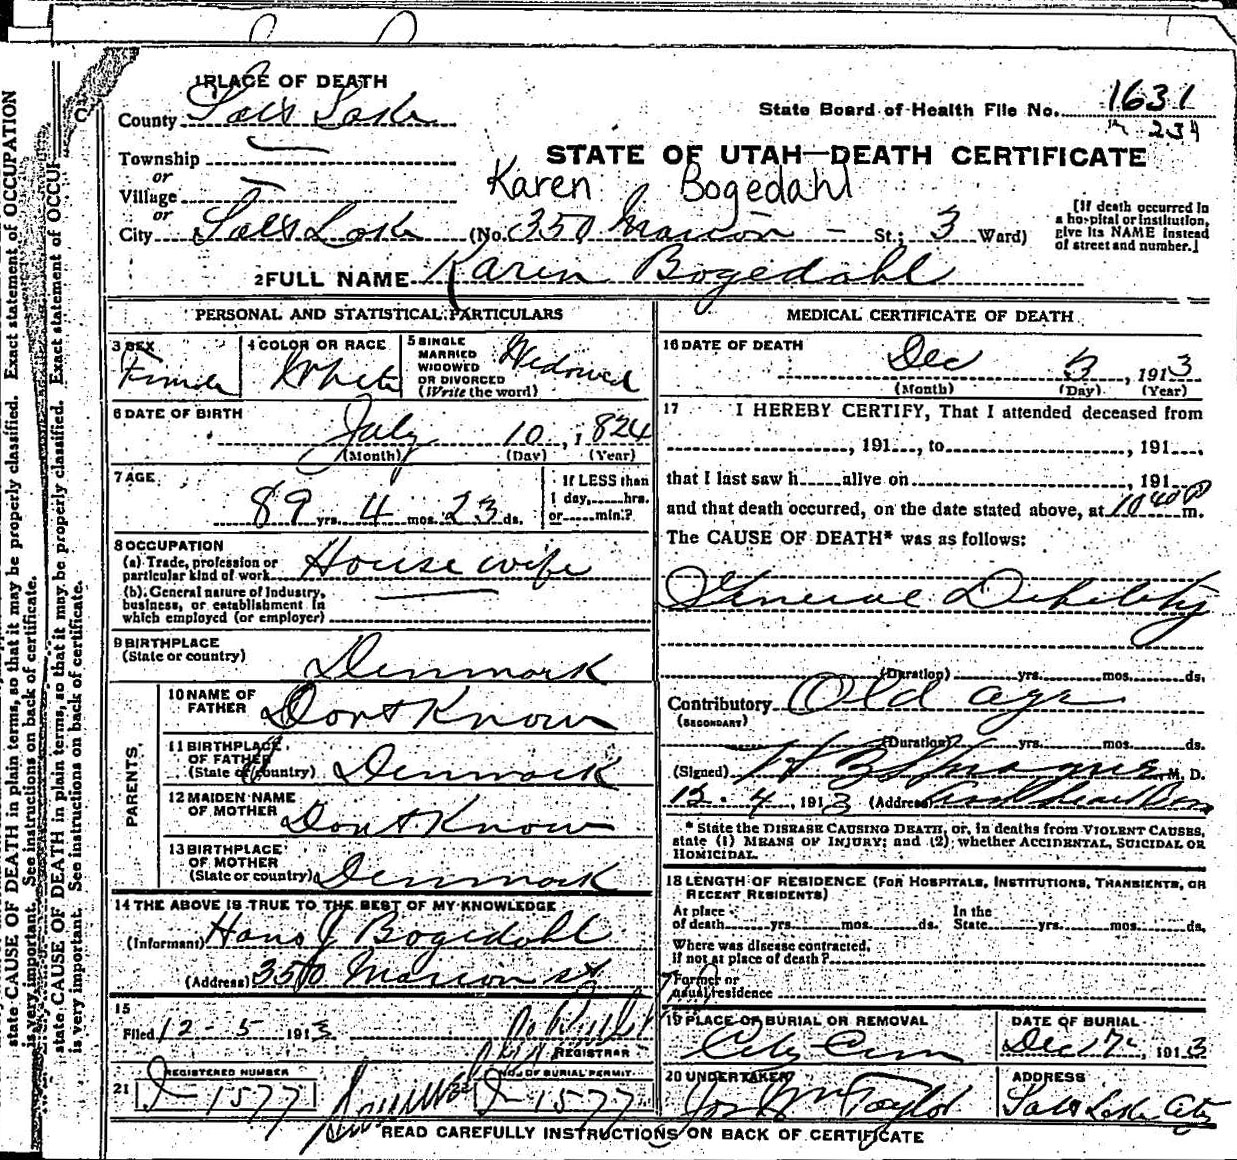 1 PLACE OF DEATH
County Salt Lake
State Board of Health File No. 1631
234
Township
or
STATE OF UTAH—DEATH CERTIFICATE
Village
Karen Bogedahl
or
City Salt Lake (No. 350 Marion St.; 3 Ward)
[If death occurred in
a hospital or institution,
give its NAME instead
of street and number.]
2 FULL NAME Karen Bogedahl
PERSONAL AND STATISTICAL PARTICULARS
3 SEX
Female
4 COLOR OR RACE
White
5 SINGLE
MARRIED
WIDOWED
OR DIVORCED
(Write the word)
Widowed
6 DATE OF BIRTH
July 10, 1824
(Month) (Day) (Year)
7 AGE
89 yrs. 4 mos. 23 ds.
If LESS than
1 day, hrs.
or min.?
8 OCCUPATION
(a) Trade, profession or
particular kind of work House wife
(b) General nature of Industry,
business, or establishment in
which employed (or employer)
9 BIRTHPLACE
(State or country)
Denmark
PARENTS
10 NAME OF
FATHER
Dont Know
11 BIRTHPLACE
OF FATHER
(State or country) Denmark
12 MAIDEN NAME
OF MOTHER
Dont Know
13 BIRTHPLACE
OF MOTHER
(State or country) Denmark
14 THE ABOVE IS TRUE TO THE BEST OF MY KNOWLEDGE
(Informant) Hans J Bogedahl
(Address) 350 Marion st
15
Filed 12-5 1913
REGISTRAR
21
REGISTERED NUMBER
J-1577
22
NO. OF BURIAL PERMIT
J-1577
MEDICAL CERTIFICATE OF DEATH
16 DATE OF DEATH
Dec 3, 1913
(Month) (Day) (Year)
17 I HEREBY CERTIFY, That I attended deceased from
, 191 , to , 191 ,
that I last saw h alive on , 191
and that death occurred, on the date stated above, at 10 40 P m.
The CAUSE OF DEATH* was as follows:
General Debility
(Duration) yrs. mos. ds.
Contributory Old age
(SECONDARY)
(Duration) yrs. mos. ds.
(Signed) H B Sprague M. D.
12-4, 1913 (Address)
* State the DISEASE CAUSING DEATH, or, in deaths from VIOLENT CAUSES,
state (1) MEANS OF INJURY; and (2) whether ACCIDENTAL, SUICIDAL OR
HOMICIDAL.
18 LENGTH OF RESIDENCE (FOR HOSPITALS, INSTITUTIONS, TRANSIENTS, OR
RECENT RESIDENTS)
At place
of death yrs. mos. ds.
In the
State yrs. mos. ds.
Where was disease contracted,
if not at place of death?
Former or
usual residence
19 PLACE OF BURIAL OR REMOVAL
City Cem
DATE OF BURIAL
Dec 7, 1913
20 UNDERTAKER
Jos Wm Taylor
ADDRESS
Salt Lake City
READ CAREFULLY INSTRUCTIONS ON BACK OF CERTIFICATE
state CAUSE OF DEATH in plain terms, so that it may be properly classified. Exact statement of OCCUPATION
is very important. See instructions on back of certificate.
state CAUSE OF DEATH in plain terms, so that it may be properly classified. Exact statement of OCCUP
is very important. See instructions on back of certificate.